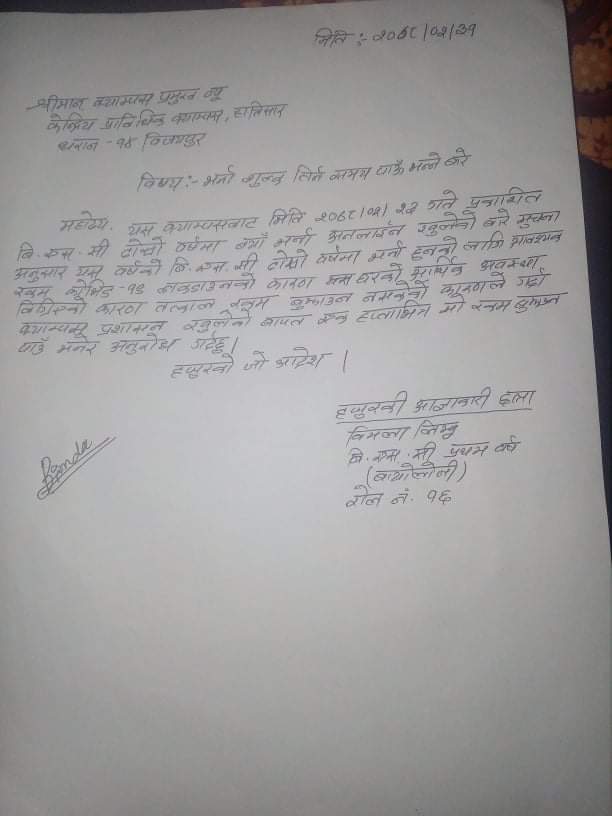 मिति :- २०७८/०२/३१
श्रीमान क्याम्पस प्रमुख ज्यू
केन्द्रिय प्राविधिक क्याम्पस, हात्तिसार
धरान -१४ विजयपुर
विषय:- भर्ना शुल्क तिर्न समय पाऊँ भन्ने बारे
महोदय, यस क्याम्पसबाट मिति २०७८/०२/२३ गते प्रकाशित
बि.एस.सी दोस्रो वर्षमा नयाँ भर्ना अनलाईन खुलेको बारे सुचना
अनुसार यस वर्षको बि.एस.सी दोस्रो वर्षमा भर्ना हुनको लागि आवश्यक
रकम कोभिड-१९ लकडाउनको कारण घरको आर्थिक अवस्था
बिग्रिएको कारण तत्काल रकम बुझाउन नसकेको कारणले गर्दा
क्याम्पस प्रशासन खुलेको बापत एक हप्ताभित्र सो रकम बुझाउन
पाउँ भनेर अनुरोध गर्दछु।
हजुरको जो आदेश।
हजुरकी आज्ञाकारी छात्रा
विमला लिम्बु
बि.एस.सी प्रथम वर्ष
(बायोलोजी)
रोल नं. १६